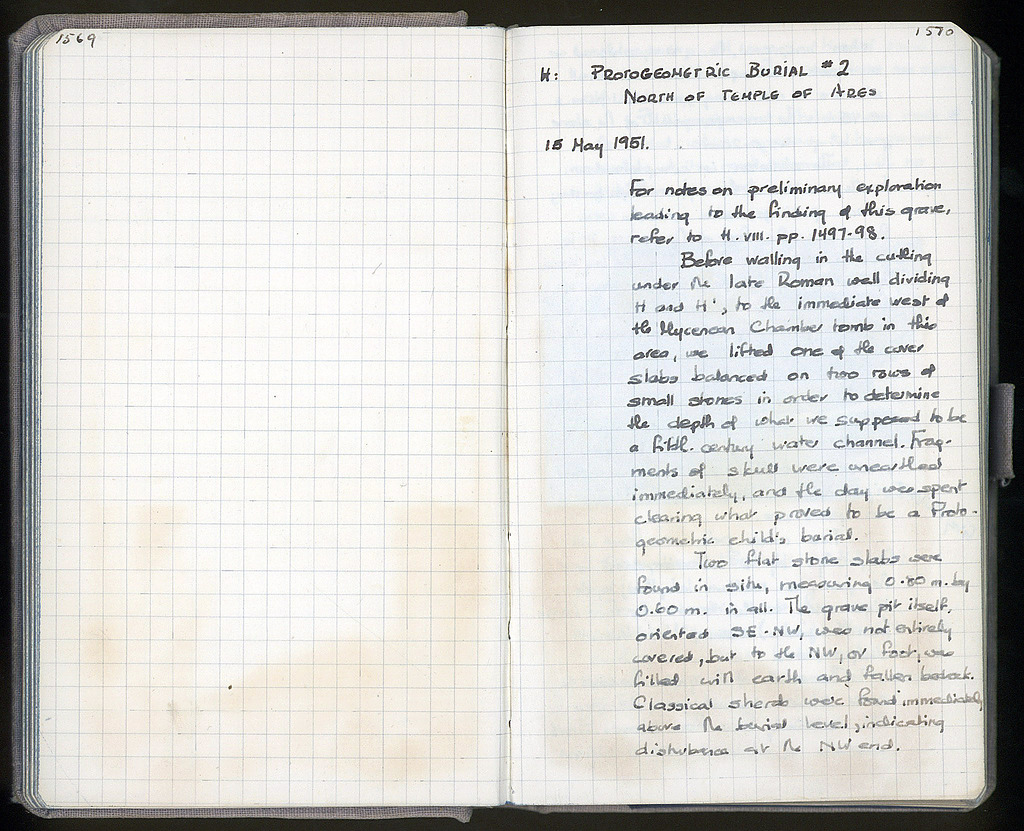 1569
1570
H: PROTOGEOMETRIC BURIAL #2
NORTH OF TEMPLE OF ARES
15 May 1951.
For notes on preliminary exploration
leading to the finding of this grave,
refer to H. VIII. pp. 1497-98.
Before walling in the cutting
under the late Roman wall dividing
H and H', to the immediate west of
the Mycenean Chamber tomb in this
area, we lifted one of the cover
slabs balanced on two rows of
small stones in order to determine
the depth of what we supposed to be
a fifth. century water channel. Frag-
ments of skull were unearthed
immediately, and the day was spent
clearing what proved to be a Proto-
geometric child's burial.
Two flat stone slabs were
found in situ, measuring 0.80 m. by
0.60 m. in all. The grave pit itself,
oriented SE-NW, was not entirely
covered, but to the NW, or foot, was
filled with earth and fallen bedrock.
Classical sherds were found immediately
above the burial level, indicating
disturbance at the NW end.